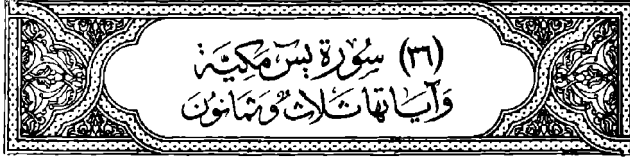 (٣٦) سُورَة يس مَكيَّة
وَآيَاتهَا ثَلَاثٌ وَثمَانُونَ